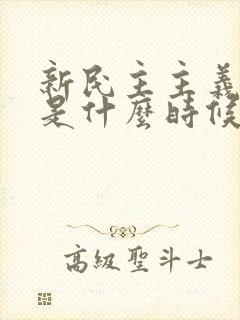 新民主主義
是什麼時候
高級聖斗士